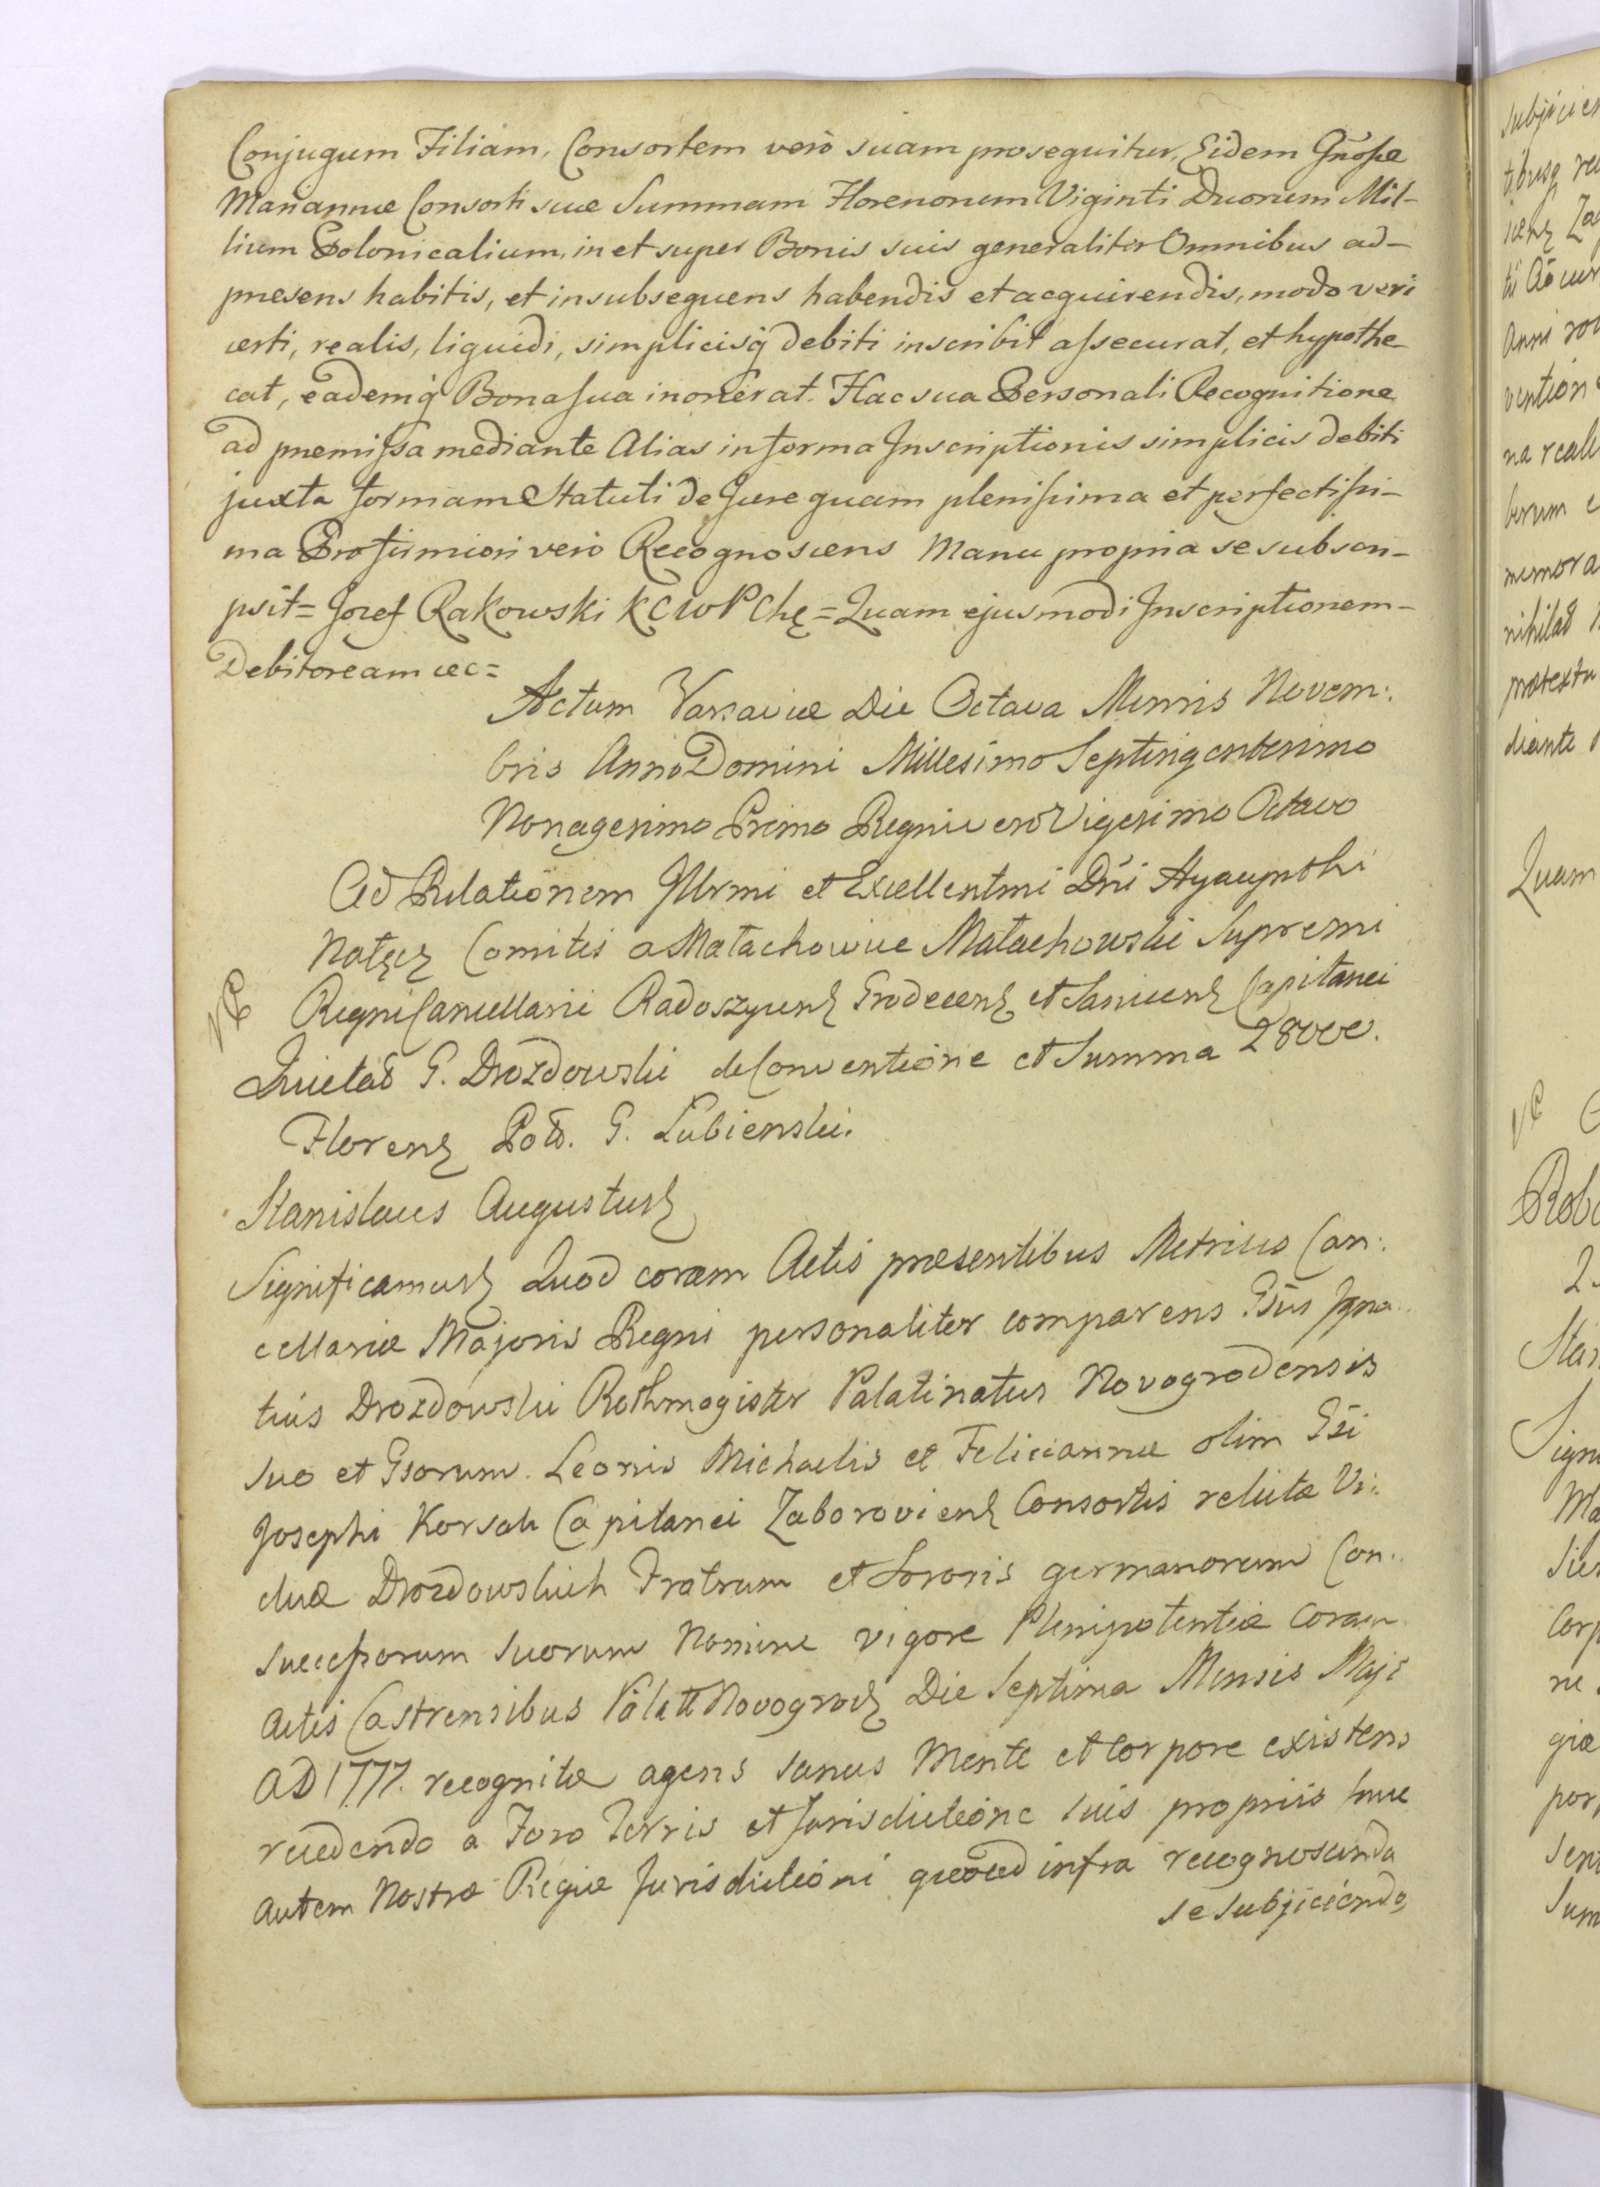 Conjugum Filiam, Consortem verò suam prosequitur, Eidem Gnosæ
Mariannæ Consorti suæ Summam Florenorum Viginti Duorum Mil-
lium Polonicalium, in et super Bonis suis generaliter Omnibus ad-
præsens habitis, et in subsequens habendis et acquirendis, modo veri
certi, realis, liquidi, simplicisq́ debiti inscribit assecurat, et hypothe-
cat, eademq́ Bona sua inonerat. Hac sua Personali Recognitione
ad præmissa mediante Alias in forma Inscriptionis simplicis debiti
juxta formam Statuti de Jure quam plenissima et perfectissi-
ma Pro firmiori verò Recognoscens Manu propria se subscri-
psit = Jozef Rakowski KCWP Chę = Quam ejusmodi Inscriptionem-
Debitoream &c =
Actum Varsaviæ Die Octava Mensis Novem:
bris Anno Domini Millesimo Septingentesimo
Nonagesimo Primo Regni vero Vigesimo Octavo
Ad Relationem Jllrmi et Excellentmi Dni Hyacynthi
Nałęcz Comitis a Małachowice Małachowski Supremi
Regni Cancellarii Radoszycens Grodecens et Sanicens Capitanei
Quietaō G. Drozdowski de Conventione et Summa 28000.
Florens Pol. G. Lubienski.
Stanislaus Augustus
Significamus Quod coram Actis præsentibus Metrices Can:
cellariæ Majoris Regni personaliter comparens Gsūs Igna:
tius Drozdowski Rothmagister Palatinatus Novogrodensis
suo et Gsorum. Leonis Michaelis et Feliciannæ olim Gsi
Josephi Korsak Capitanei Zaboroviens Consortis relictæ Vi:
duæ Drozdowskich Fratrum et Sororis germanorum Con:
successorum suorum Nomine vigore Plenipotentiæ coram
Actis Castrensibus Palatt Novogrods Die Septima Mensis Maji
AD 1777. recognitæ agens sanus Mente et Corpore existens
recedendo a Foro Terris et Jurisdictione suis propriis huic
autem Nostræ Regiæ Jurisdictioni quoad infra recognoscenda
se subjiciendo,